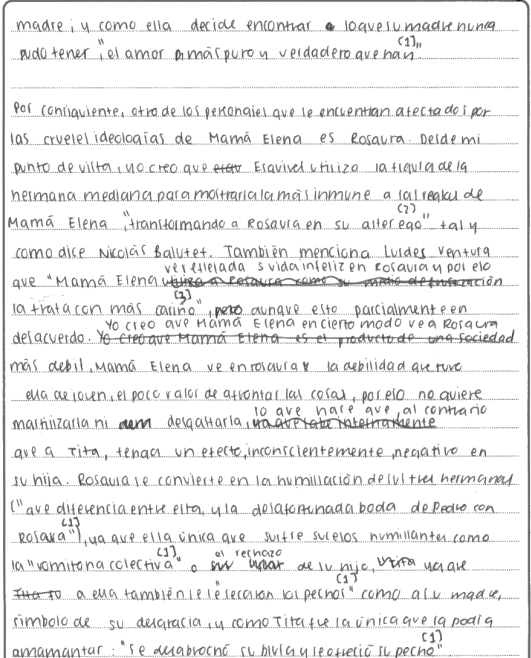 madre; y como ella decide encontrar loque su madre nunca
pudo tener, "el amor más puro y verdadero que han [1]".
Por consiguiente, otro de los personajes que se encuentran afectados por
las crueles ideologías de Mamá Elena es Rosaura. Desde mi
punto de vista, yo creo que Esquivel utiliza la figura de la
hermana mediana para mostrarla la más inmune a las reglas de
Mamá Elena, "transformando a Rosaura en su alter ego" [2] tal y
como dice Nicolás Balutet. También menciona Lurdes Ventura
que "Mamá Elena ve reflejada su vida infeliz en Rosaura y por ello
la trata con más cariño" [3], aunque esto parcialmente en
desacuerdo. Yo creo que Mamá Elena en cierto modo ve a Rosaura
más debil, Mamá Elena ve en rosaura la debilidad que tuvo
ella de joven, el poco valor de afrontar las cosas, por eso no quiere
martirizarla ni desgastarla, lo que hace que, al contrario
que a Tita, tenga un efecto, inconscientemente, negativo en
su hija. Rosaura se convierte en la humillación de sus tres hermanas
("que diferencia entre esta, y la desafortunada boda de Pedro con
Rosaura" [1]), ya que ella única que sufre sucesos humillantes como
la "vomitona colectiva" [1] o el rechazo de su hijo, ya que
a ella también se le secaron los pechos" [1] como a su madre,
símbolo de su desgracia, y como Tita fue la única que la podía
amamantar: "Se desabrochó su blusa y le ofreció su pecho" [1].